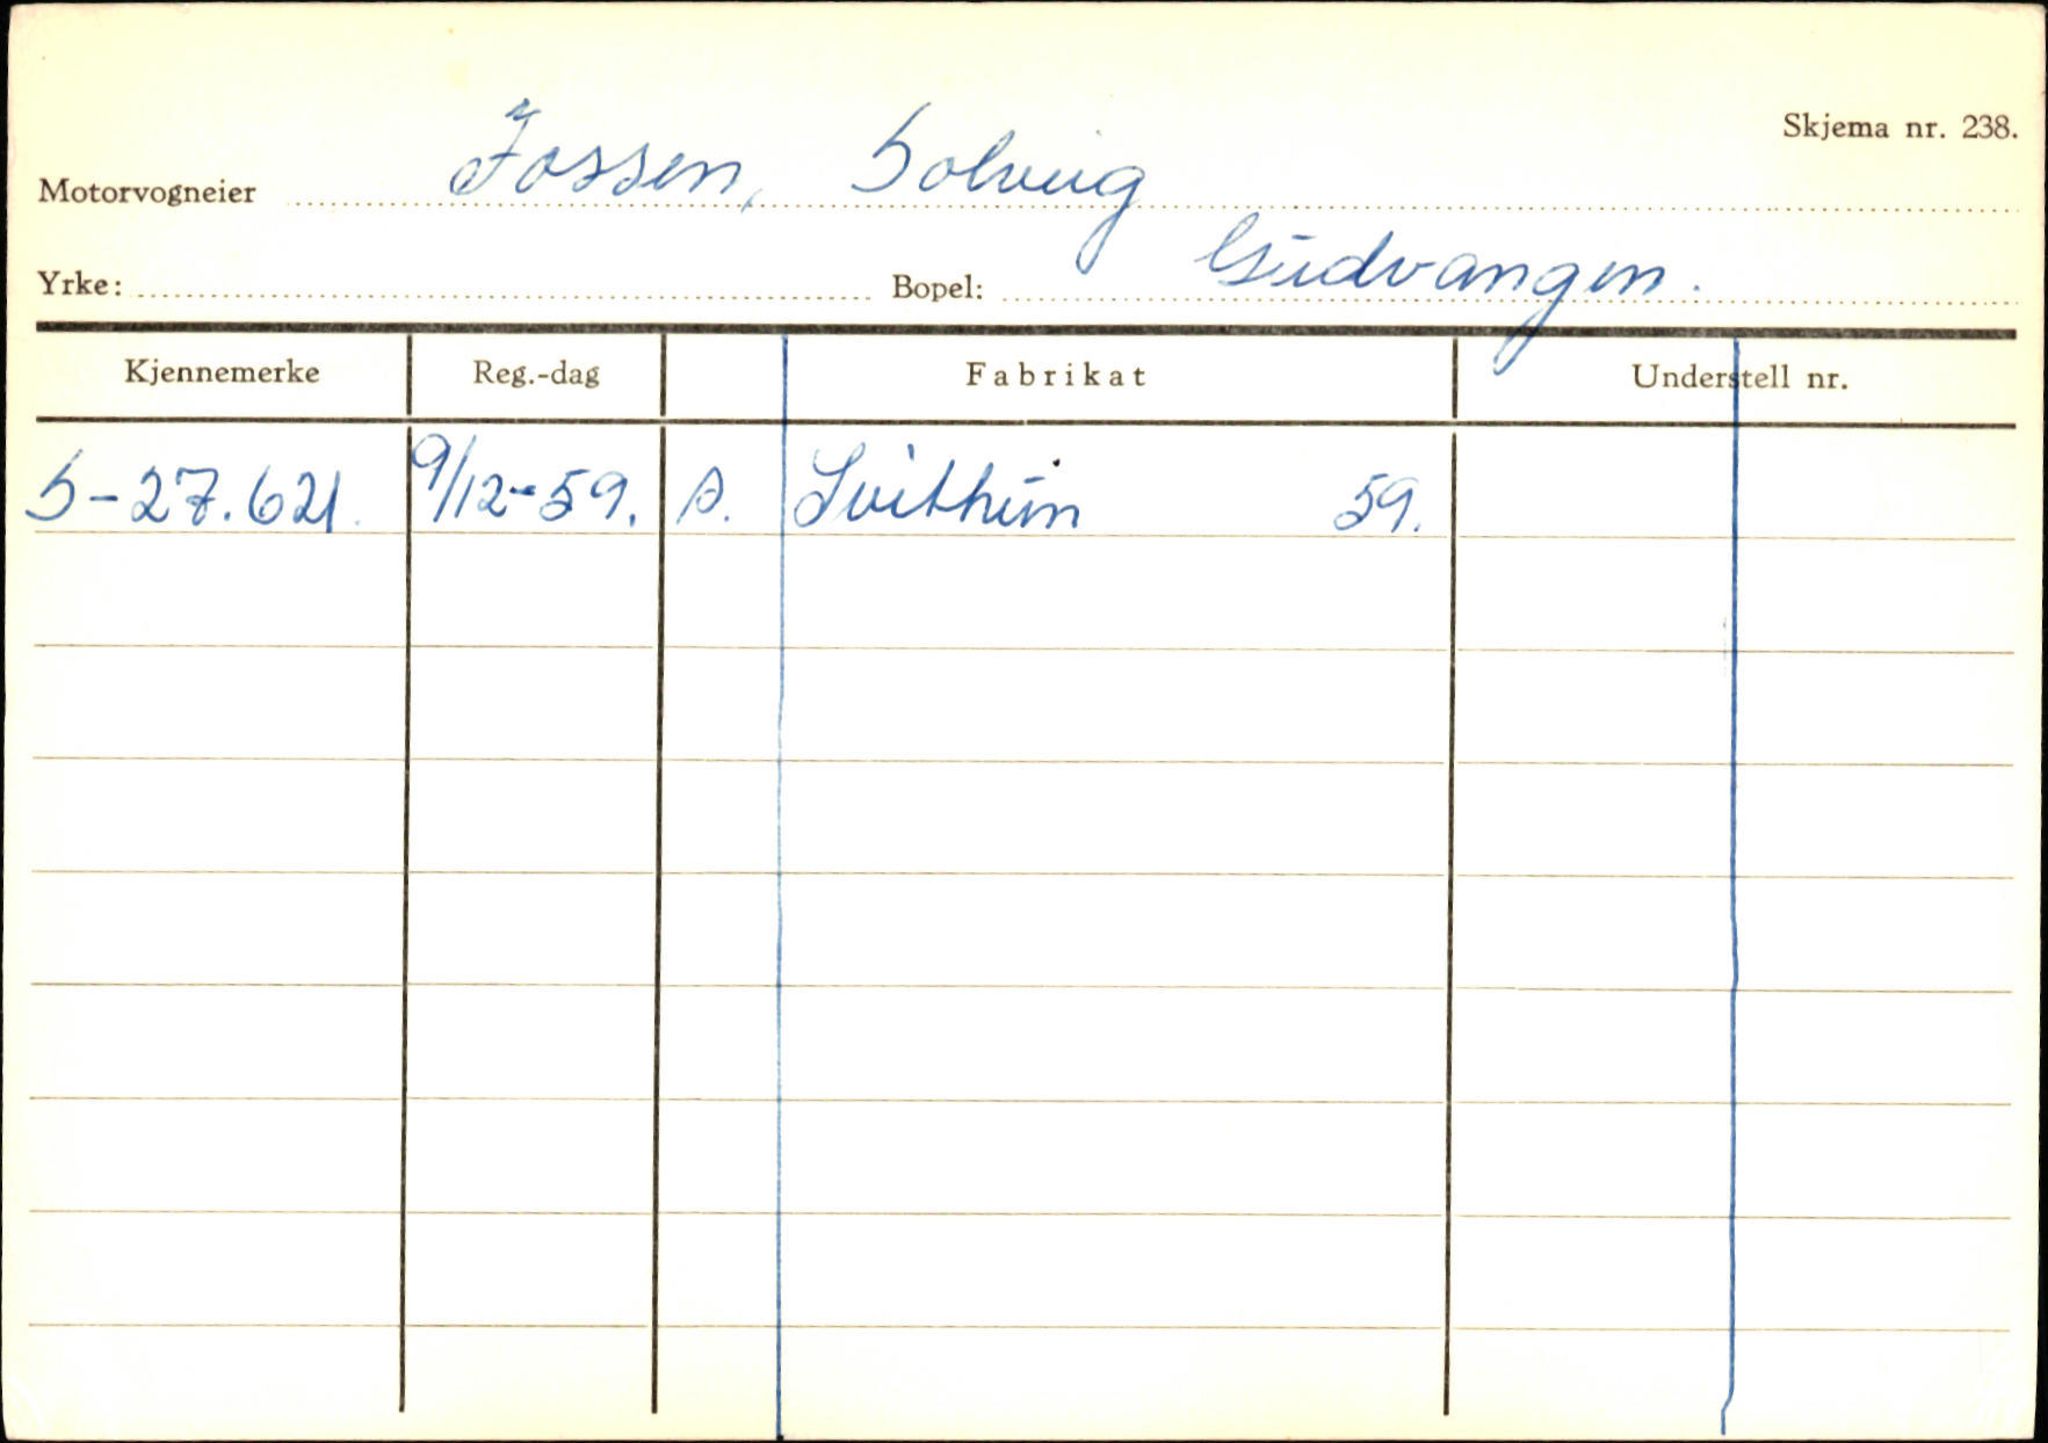 Skjema nr. 238.
Motorvogneier Fossen, Solveig
Yrke: Bopel: Gudvangen.
Kjennemerke Reg.-dag Fabrikat Understell nr.
S-27.621. 9/12-59. s. Svithun 59.